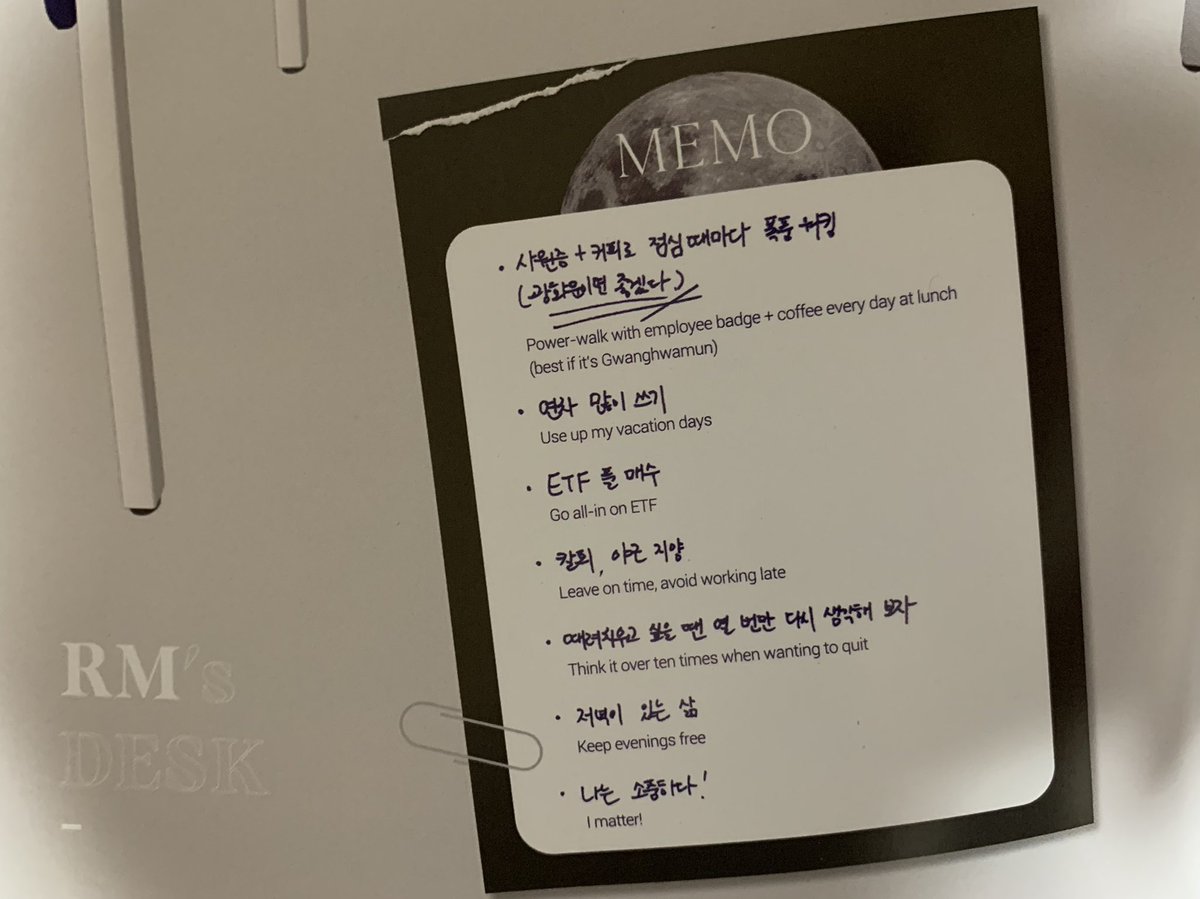 MEMO
• 사원증 + 커피로 점심때마다 폭풍 워킹
(광화문이면 좋겠다)
Power-walk with employee badge + coffee every day at lunch
(best if it's Gwanghwamun)
• 연차 많이 쓰기
Use up my vacation days
• ETF 풀 매수
Go all-in on ETF
• 칼퇴, 야근 지양
Leave on time, avoid working late
• 때려치우고 싶을 땐 열 번만 다시 생각해 보자
Think it over ten times when wanting to quit
• 저녁이 있는 삶
Keep evenings free
• 나는 소중하다!
I matter!
RM's
DESK